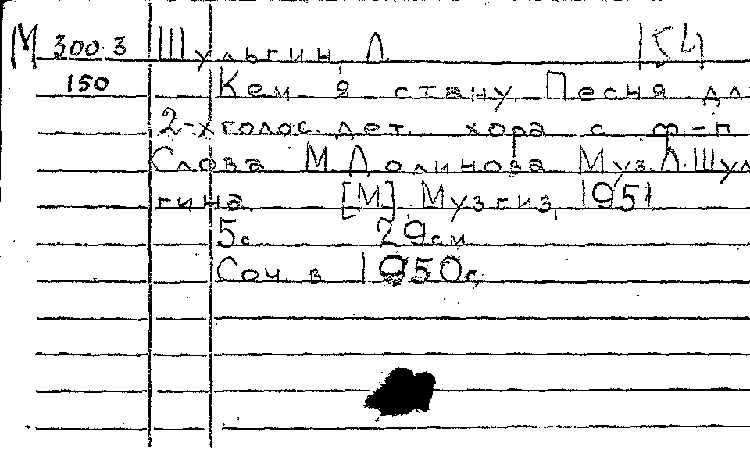 М 300.3 Шульгин, Л.
150 Кем я стану. Песня дл
2-хголос. дет. хора с ф-п
Слова М. Долинова Муз. Л. Шул
гина. [М], Музгиз, 1951
5с 29см
Соч. в 1950г.